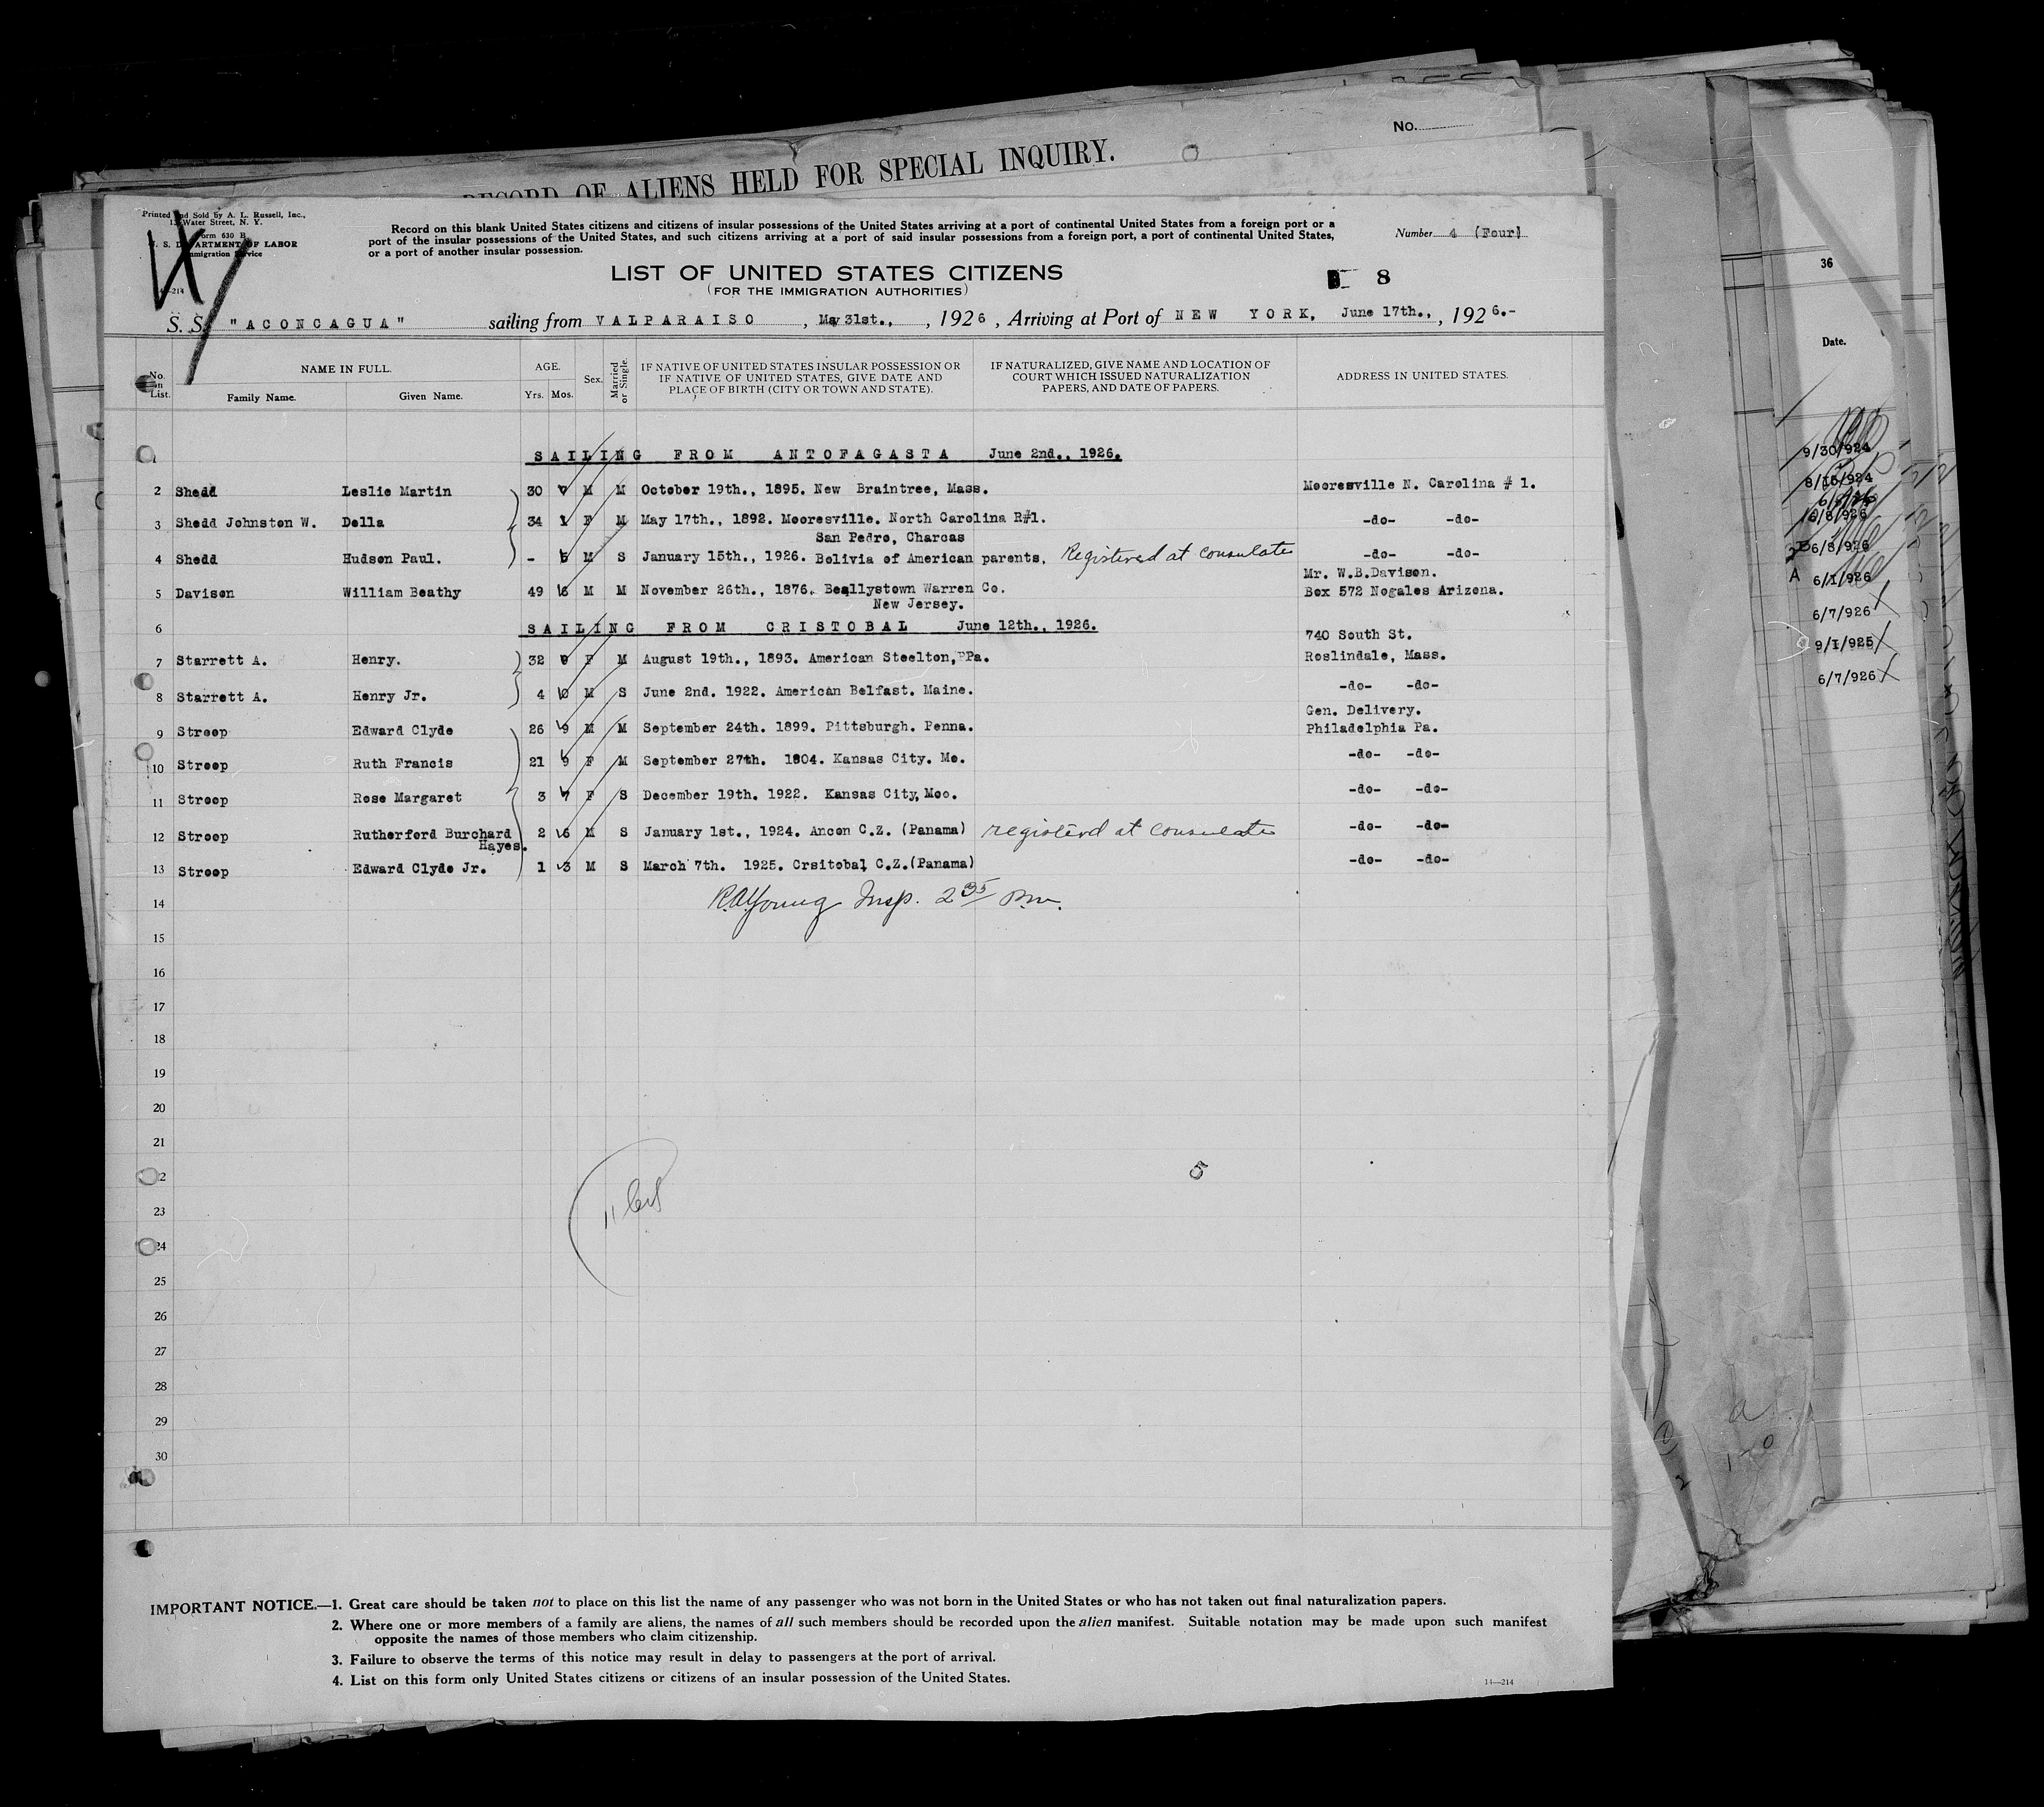 No.
RECORD OF ALIENS HELD FOR SPECIAL INQUIRY.
Printed and Sold by A. L. Russell, Inc.,
Water Street, N. Y.
Form 630 B
U. S. DEPARTMENT OF LABOR
Immigration Service
14—214
Record on this blank United States citizens and citizens of insular possessions of the United States arriving at a port of continental United States from a foreign port or a
port of the insular possessions of the United States, and such citizens arriving at a port of said insular possessions from a foreign port, a port of continental United States,
or a port of another insular possession.
Number 4 (Four)
LIST OF UNITED STATES CITIZENS
(FOR THE IMMIGRATION AUTHORITIES)
8
S. S. "ACONCAGUA" sailing from VALPARAISO, May 31st., , 1926, Arriving at Port of NEW YORK, June 17th., , 1926.-
No. on List.
NAME IN FULL.
Family Name. Given Name.
AGE.
Yrs. Mos.
Sex.
Married or Single.
IF NATIVE OF UNITED STATES INSULAR POSSESSION OR
IF NATIVE OF UNITED STATES, GIVE DATE AND
PLACE OF BIRTH (CITY OR TOWN AND STATE).
IF NATURALIZED, GIVE NAME AND LOCATION OF
COURT WHICH ISSUED NATURALIZATION
PAPERS, AND DATE OF PAPERS.
ADDRESS IN UNITED STATES.
1 SAILING FROM ANTOFAGASTA June 2nd., 1926.
2 Shedd Leslie Martin 30 7 M M October 19th., 1895. New Braintree, Mass. Mooresville N. Carolina # 1.
3 Shedd Johnston W. Della 34 1 F M May 17th., 1892. Mooresville. North Carolina R#1. -do- -do-
San Pedro, Charcas
4 Shedd Hudson Paul. - 5 M S January 15th., 1926. Bolivia of American parents. Registered at consulate -do- -do-
Mr. W.B.Davison.
5 Davison William Beathy 49 6 M M November 26th., 1876. Beallystown Warren Co. Box 572 Nogales Arizona.
New Jersey.
6 SAILING FROM CRISTOBAL June 12th., 1926.
740 South St.
7 Starrett A. Henry. 32 9 F M August 19th., 1893. American Steelton, Pa. Roslindale, Mass.
8 Starrett A. Henry Jr. 4 0 M S June 2nd. 1922. American Belfast. Maine. -do- -do-
Gen. Delivery.
9 Stroop Edward Clyde 26 9 M M September 24th. 1899. Pittsburgh. Penna. Philadelphia Pa.
10 Stroop Ruth Francis 21 9 F M September 27th. 1804. Kansas City. Mo. -do- -do-
11 Stroop Rose Margaret 3 7 F S December 19th. 1922. Kansas City, Moo. -do- -do-
12 Stroop Rutherford Burchard 2 6 M S January 1st., 1924. Ancon C.Z. (Panama) registerd at consulate -do- -do-
Hayes.
13 Stroop Edward Clyde Jr. 1 3 M S March 7th. 1925. Crsitobal C.Z.(Panama) -do- -do-
14 R.A. Young Insp. 2 35 P.m.
15
16
17
18
19
20
21
22
5
23
24
25
26
27
28
29
30
IMPORTANT NOTICE.—1. Great care should be taken not to place on this list the name of any passenger who was not born in the United States or who has not taken out final naturalization papers.
2. Where one or more members of a family are aliens, the names of all such members should be recorded upon the alien manifest. Suitable notation may be made upon such manifest
opposite the names of those members who claim citizenship.
3. Failure to observe the terms of this notice may result in delay to passengers at the port of arrival.
4. List on this form only United States citizens or citizens of an insular possession of the United States.
14—214
36
Date.
9/30/924
8/15/924
6/8/926
A 6/1/926
6/7/926
9/1/925
6/7/926